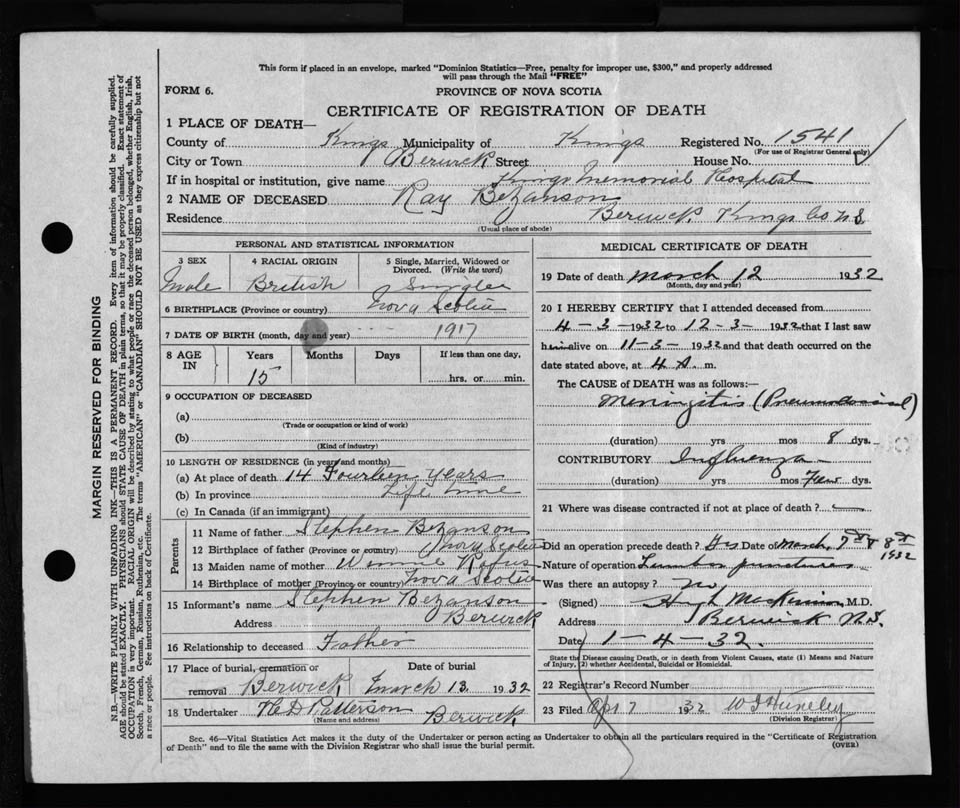 This form if placed in an envelope, marked "Dominion Statistics—Free, penalty for improper use, $300," and properly addressed
will pass through the Mail "FREE"
FORM 6.
PROVINCE OF NOVA SCOTIA
CERTIFICATE OF REGISTRATION OF DEATH
1 PLACE OF DEATH—
County of Kings Municipality of Kings Registered No. 1541
(For use of Registrar General only)
City or Town Berwick Street House No.
If in hospital or institution, give name Kings Memorial Hospital
2 NAME OF DECEASED Ray Bezanson
Residence Berwick Kings Co N.S.
(Usual place of abode)
PERSONAL AND STATISTICAL INFORMATION
3 SEX 4 RACIAL ORIGIN 5 Single, Married, Widowed or
Divorced. (Write the word)
Male British Single
6 BIRTHPLACE (Province or country) Nova Scotia
7 DATE OF BIRTH (month, day and year) 1917
8 AGE IN Years Months Days If less than one day,
15 hrs. or min.
9 OCCUPATION OF DECEASED
(a)
(Trade or occupation or kind of work)
(b)
(Kind of industry)
10 LENGTH OF RESIDENCE (in years and months)
(a) At place of death 14 Fourteen years
(b) In province Life time
(c) In Canada (if an immigrant)
Parents
11 Name of father Stephen Bezanson
12 Birthplace of father (Province or country) Nova Scotia
13 Maiden name of mother Winnie Rafus
14 Birthplace of mother (Province or country) Nova Scotia
15 Informant's name Stephen Bezanson
Address Berwick
16 Relationship to deceased Father
17 Place of burial, cremation or Date of burial
removal Berwick March 13 1932
18 Undertaker Patterson Berwick
(Name and address)
MEDICAL CERTIFICATE OF DEATH
19 Date of death March 12 1932
(Month, day and year)
20 I HEREBY CERTIFY that I attended deceased from
4-3-1932 to 12-3-1932 that I last saw
him alive on 11-3-1932 and that death occurred on the
date stated above, at 4 A. m.
The CAUSE of DEATH was as follows:—
Meningitis (Pneumococcal)
(duration) yrs mos 8 dys.
CONTRIBUTORY Influenza
(duration) yrs mos Few dys.
21 Where was disease contracted if not at place of death?
Did an operation precede death? Yes Date of March 7th & 8th 1932
Nature of operation Lumbar punctures
Was there an autopsy? No
(Signed) Hugh MacKinnon M.D.
Address Berwick N.S.
Date 1-4-32
State the Disease causing Death, or in death from Violent Causes, state (1) Means and Nature
of Injury, (2) whether Accidental, Suicidal or Homicidal.
22 Registrar's Record Number
23 Filed Apr 7 1932
(Division Registrar)
Sec. 46—Vital Statistics Act makes it the duty of the Undertaker or person acting as Undertaker to obtain all the particulars required in the "Certificate of Registration
of Death" and to file the same with the Division Registrar who shall issue the burial permit.
(OVER)
MARGIN RESERVED FOR BINDING
N.B.—WRITE PLAINLY WITH UNFADING INK—THIS IS A PERMANENT RECORD. Every item of information should be carefully supplied.
AGE should be stated EXACTLY. PHYSICIANS should STATE CAUSE OF DEATH in plain terms, so that it may be properly classified. Exact statement of
OCCUPATION is very important. RACIAL ORIGIN will be described by stating to what people or race the deceased person belonged, whether English, Irish,
Scotch, French, German, Russian, Ruthenian, etc. The terms "AMERICAN" or "CANADIAN" SHOULD NOT BE USED as they express citizenship but not
a race or people. See instructions on back of Certificate.